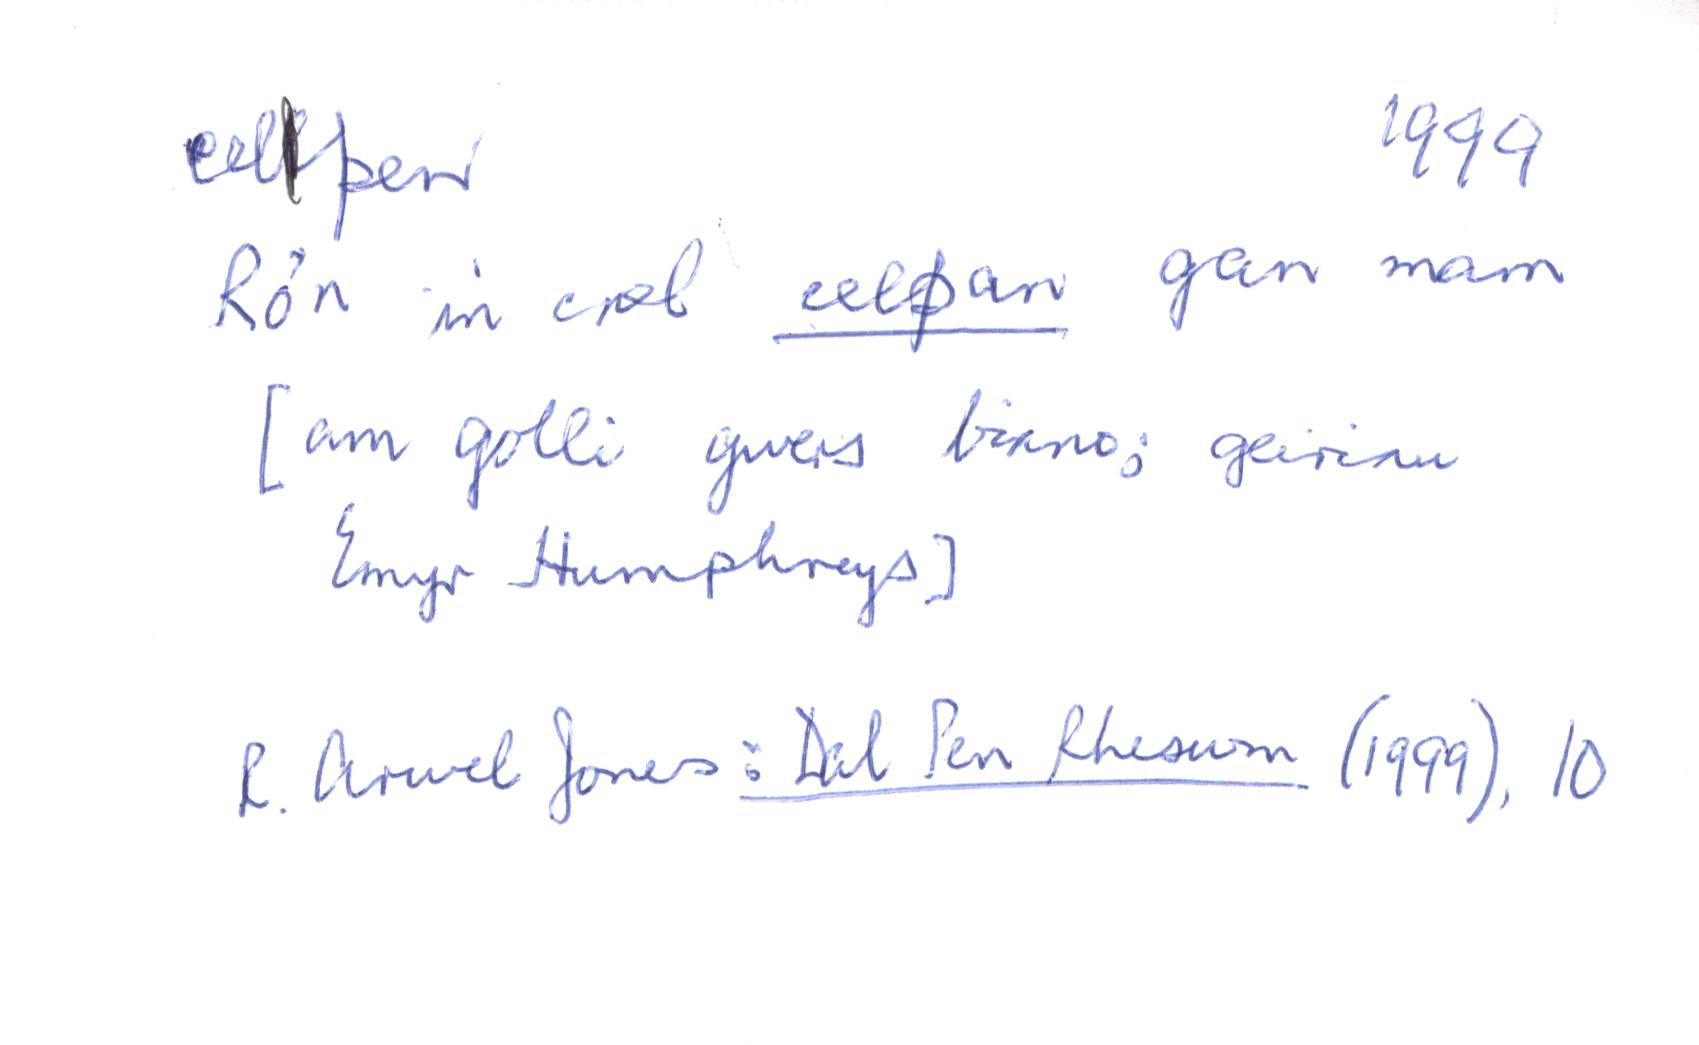 celpen 1999
Rô'n in cael celpan gan mam
[am golli gwers biano; geiriau
Emyr Humphreys]
R. Arwel Jones: Dal Pen Rheswm (1999), 10